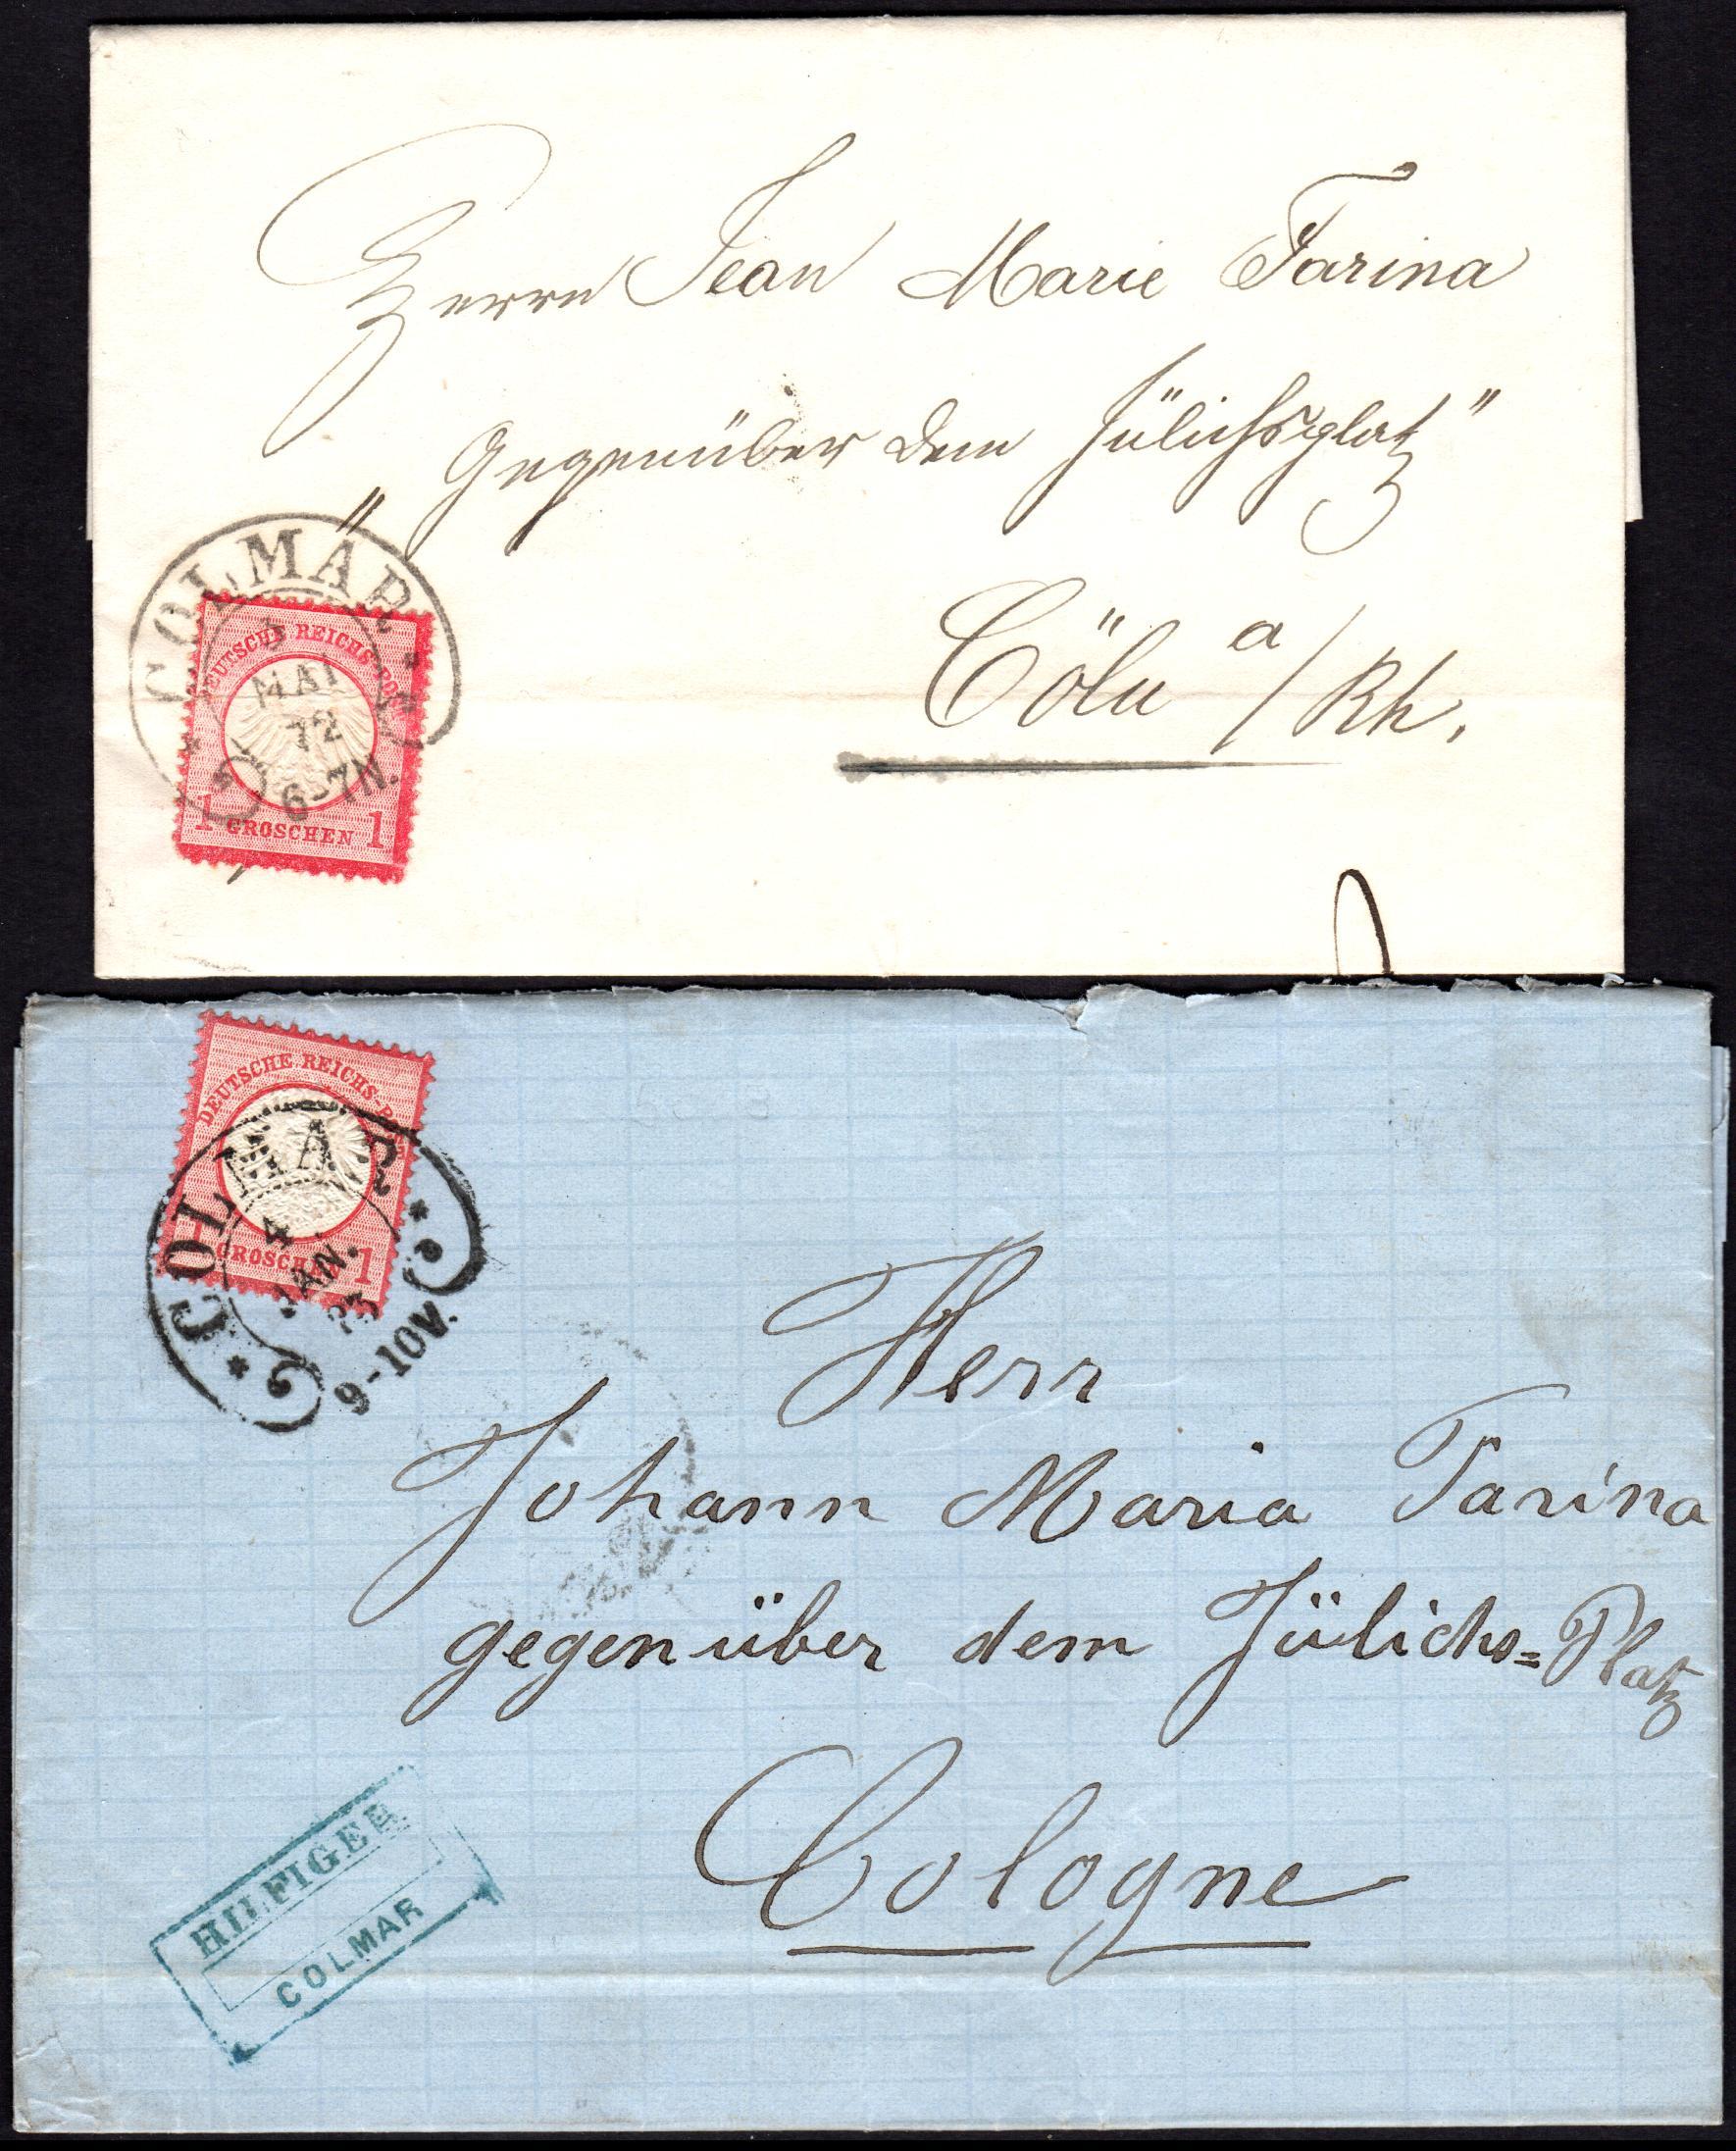 Herrn Jean Marie Farina
„gegenüber dem Jülichsplatz"
Cöln a/Rh.
COLMAR
MAI
72
6-7N.
DEUTSCHE REICHS-POST
1 GROSCHEN 1
DEUTSCHE REICHS-POST
1 GROSCHEN 1
COLMAR
4
JAN.
73
9-10V.
Herr
Johann Maria Farina
gegenüber dem Jülichs=Platz
Cologne
HILFIGER
COLMAR